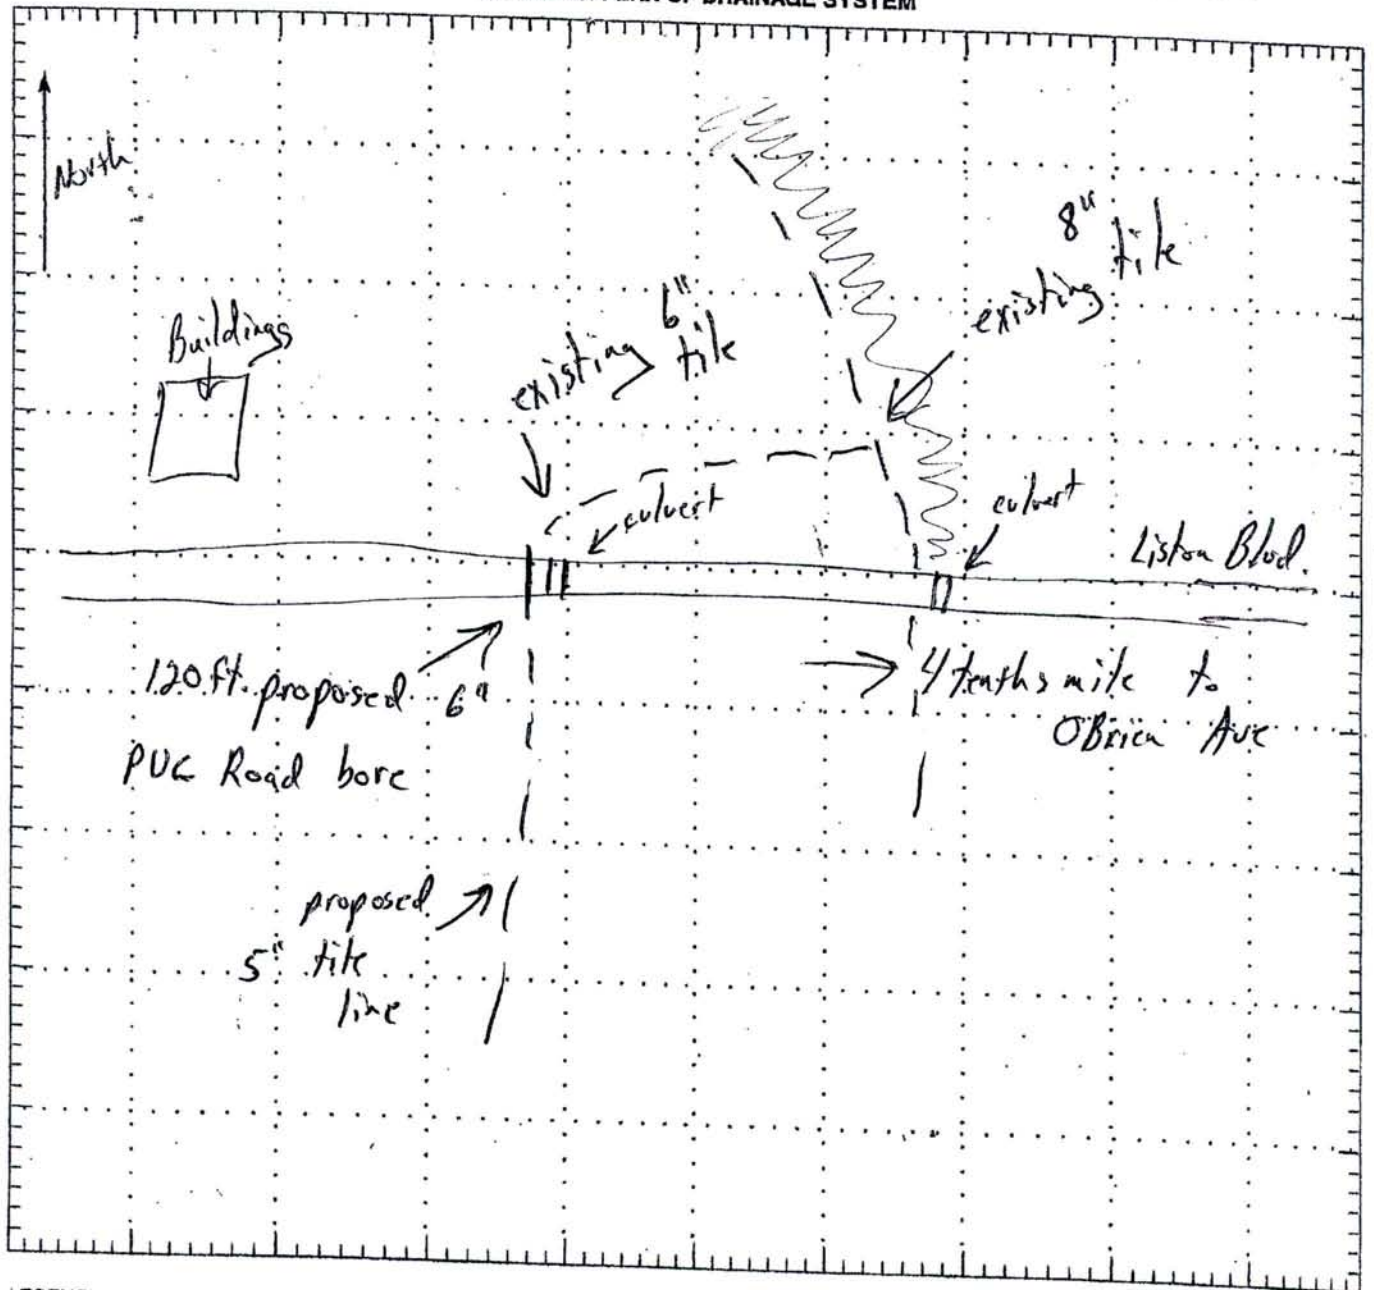 OF DRAINAGE SYSTEM
North
8"
existing tile
6"
existing tile
Buildings
culvert
culvert
Liston Blvd.
120 ft. proposed 6"
PVC Road bore
4 tenths mile to
O'Brien Ave
proposed
5" tile
line